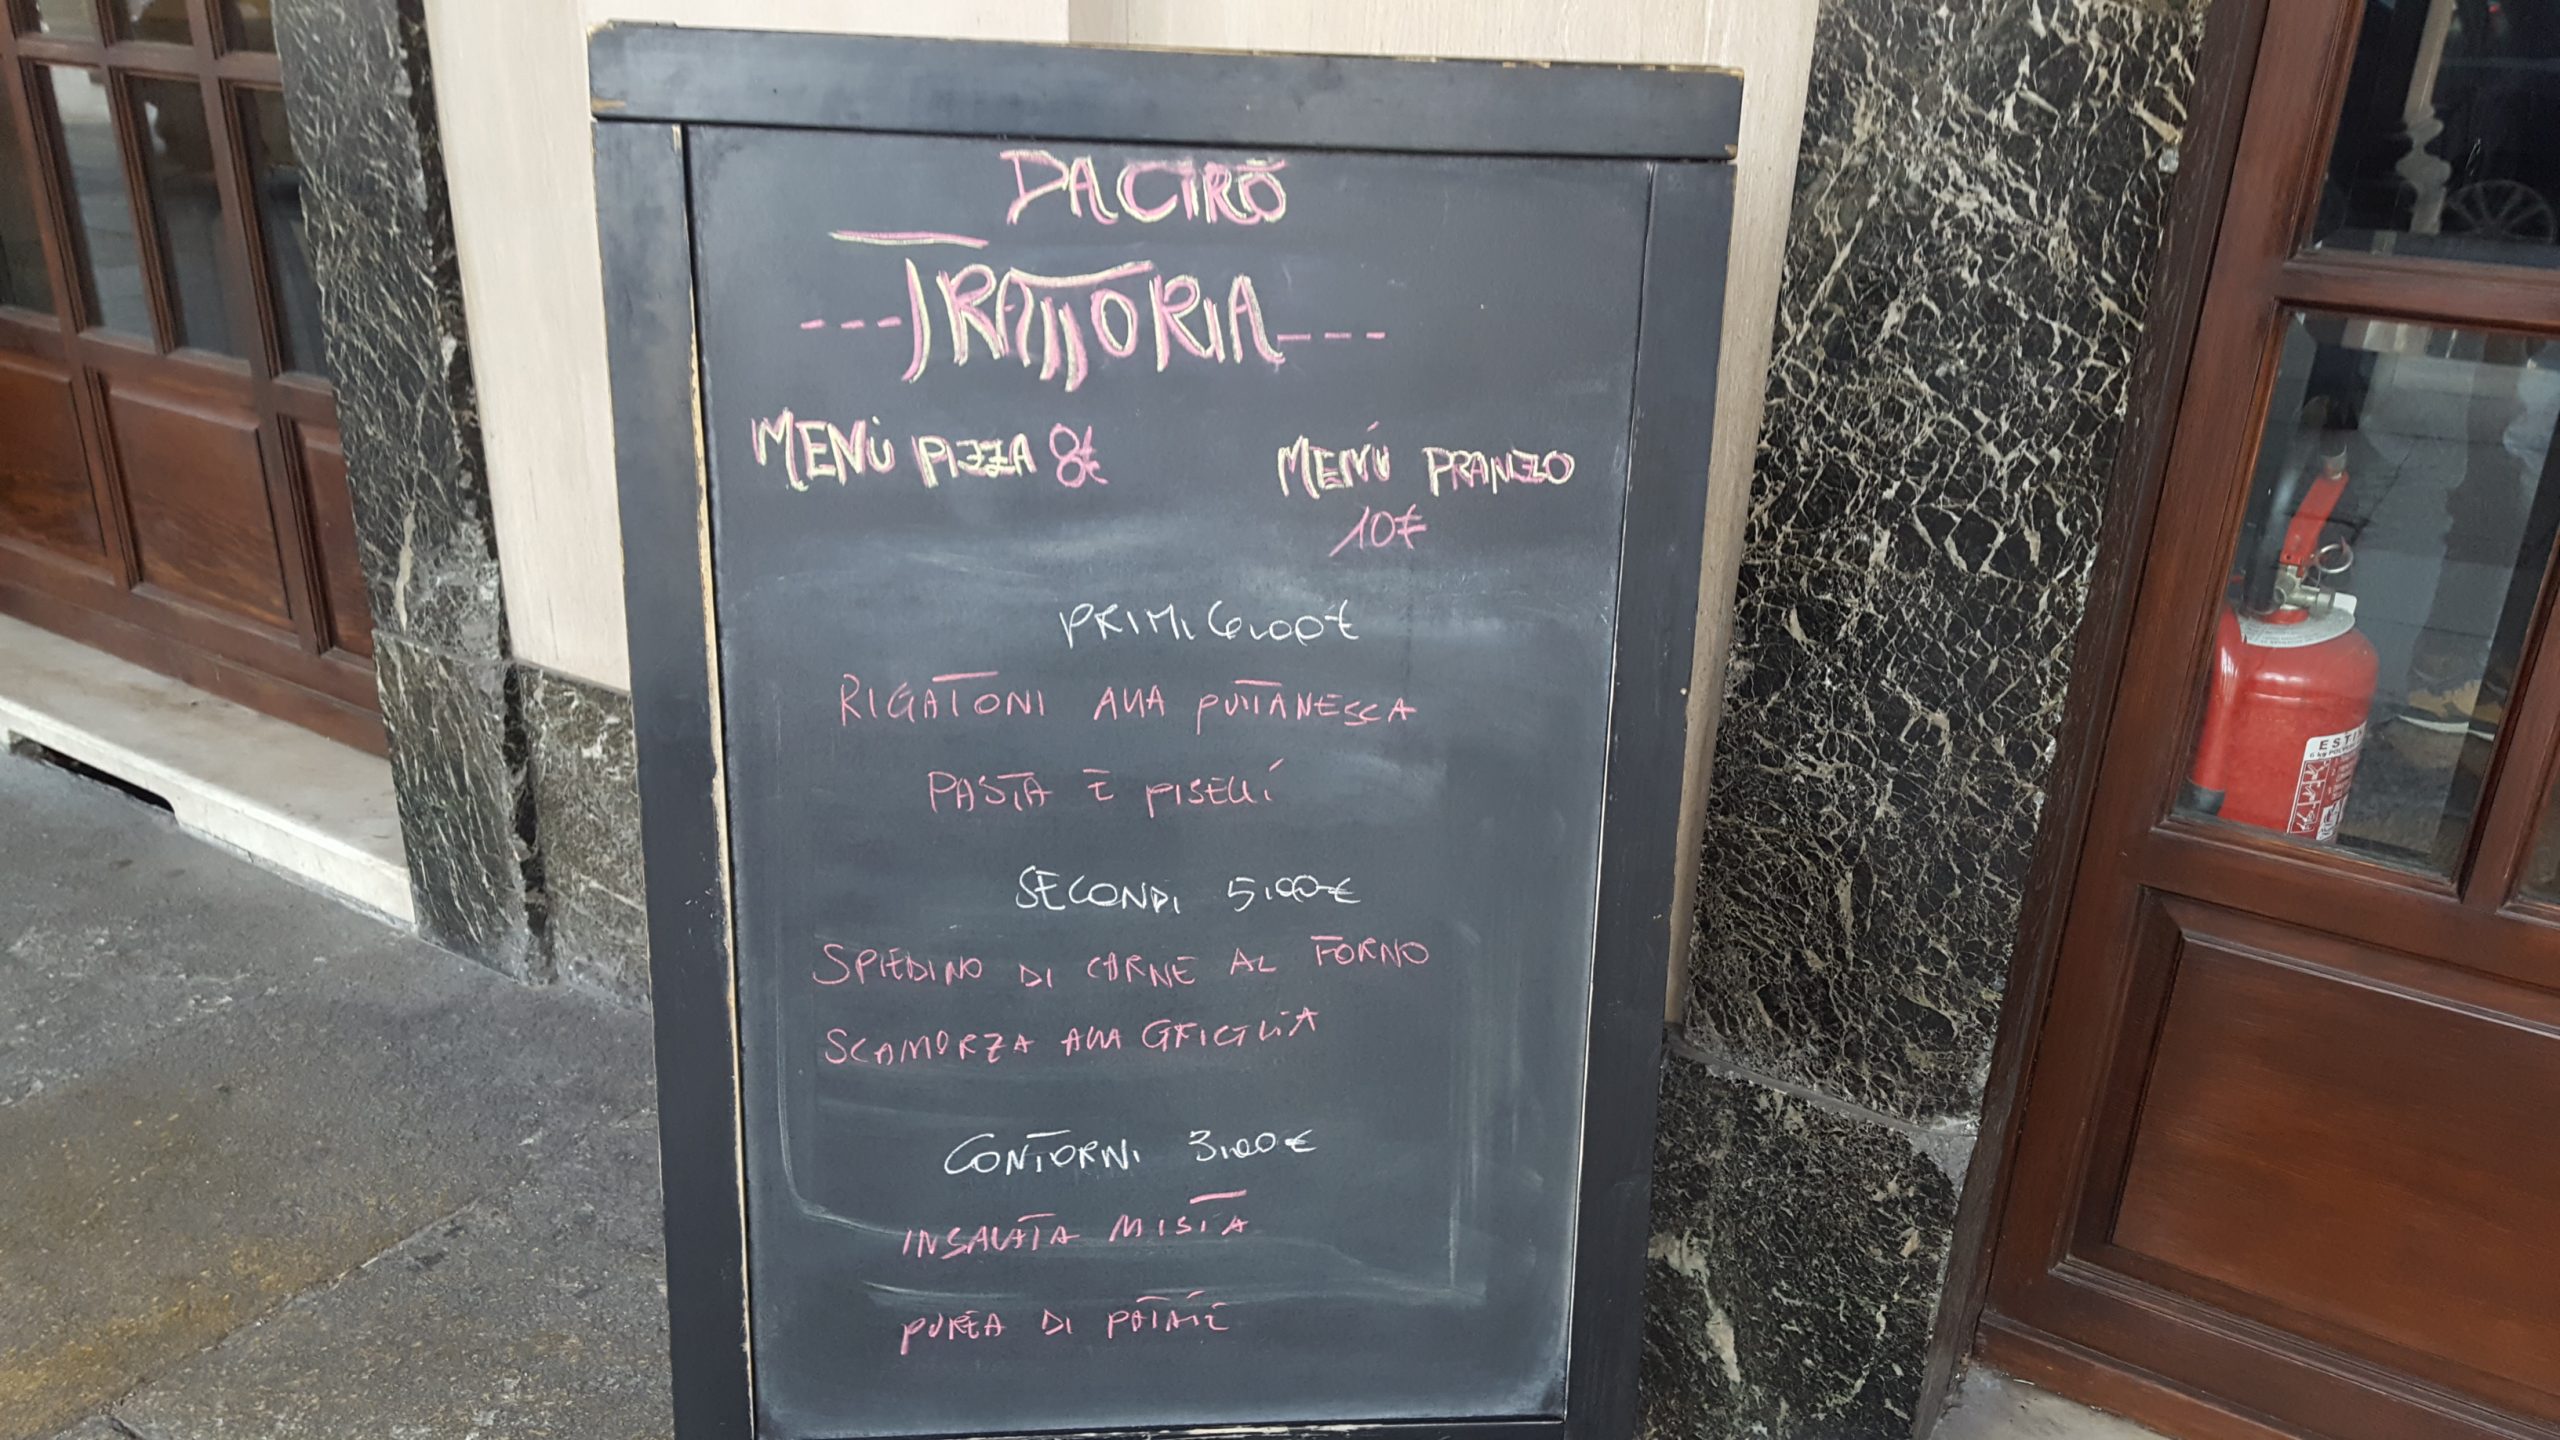 DA CIRO
TRATTORIA
MENÙ PIZZA 8€
MENÚ PRANZO
10€
PRIMI 6,00€
RIGATONI ALLA PUTTANESCA
PASTA E PISELLI
SECONDI 5,00€
SPIEDINO DI CARNE AL FORNO
SCAMORZA ALLA GRIGLIA
CONTORNI 3,00€
INSALATA MISTA
PUREA DI PATATE